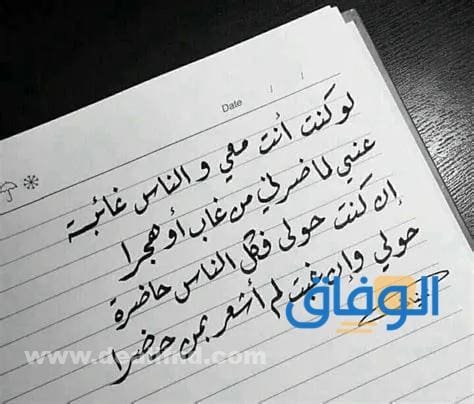 Date / /
لو كنت أنت معي و الناس غائبة
عني لما ضرني من غاب أو هجرا
إن كنت حولي فكل الناس حاضرة
حولي وإن غبت لم أشعر بمن حضرا
الوفاق